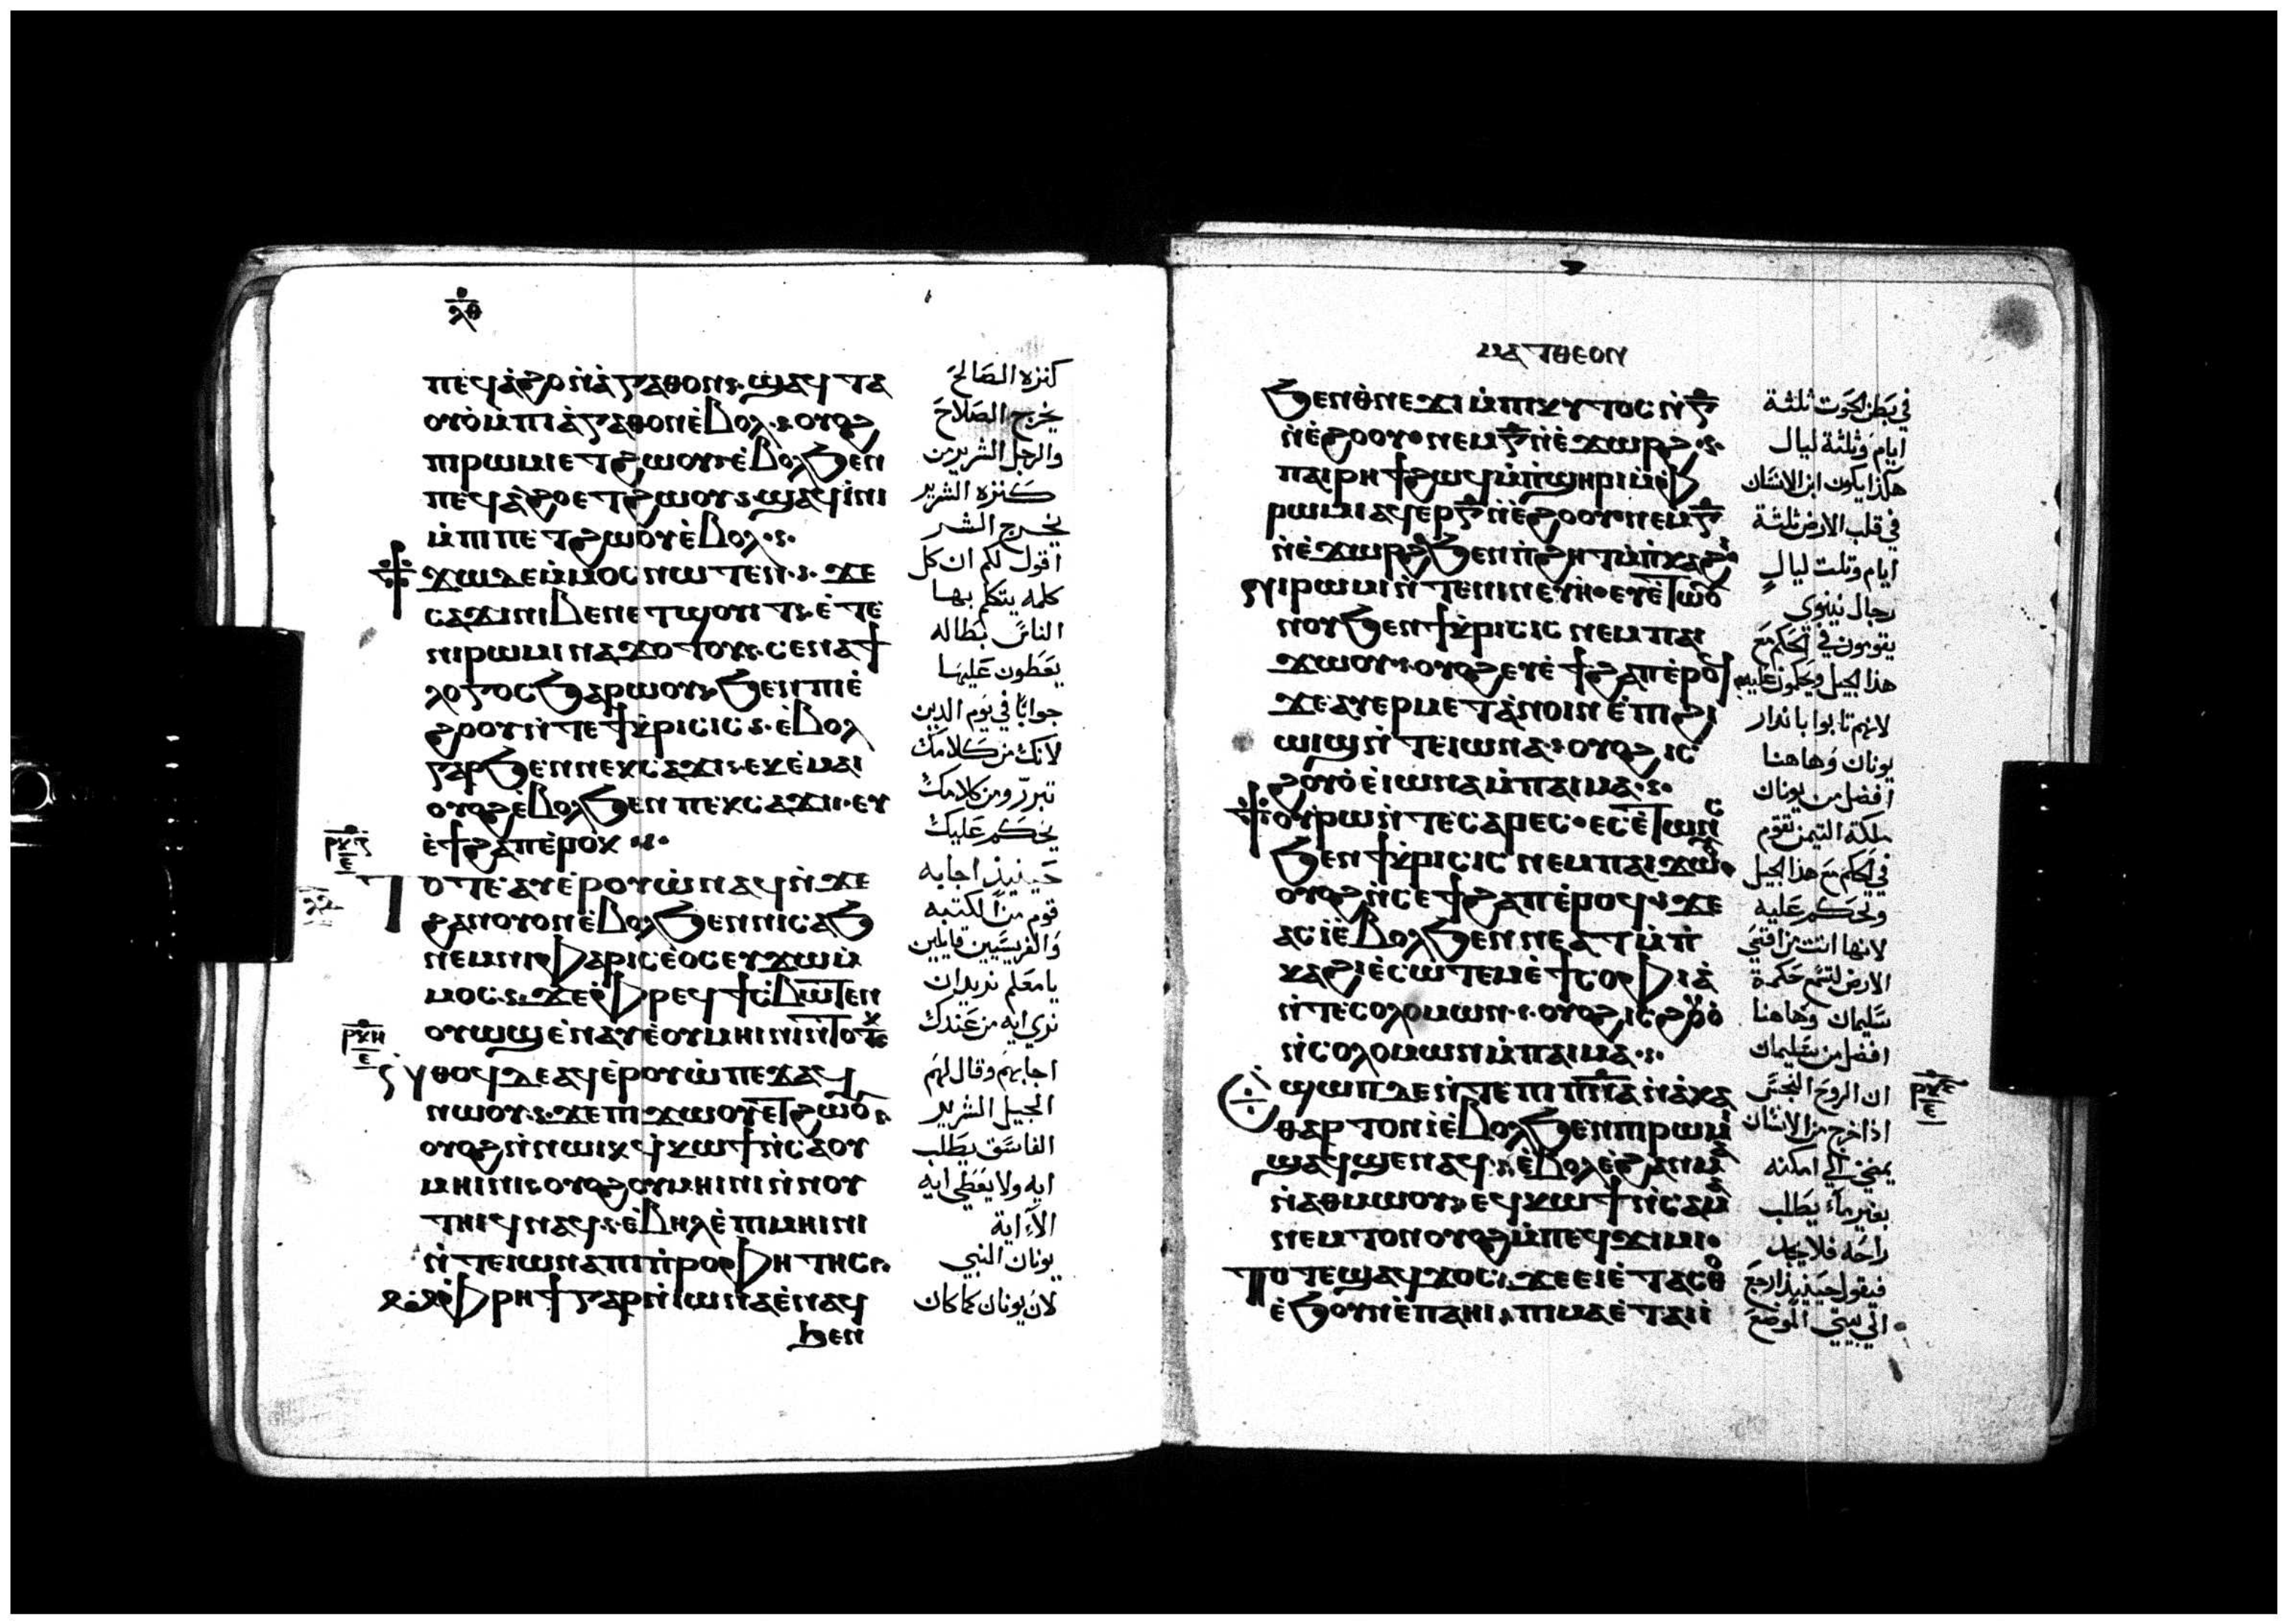 ⲗⲑ
ⲡⲉϥⲁ̀ϩⲟⲛ̀ⲁ̀ⲅⲁⲑⲟⲛ ϣⲁϥⲧⲁ
ⲟⲩⲟ̀ⲙ̀ⲡⲓⲁ̀ⲅⲁⲑⲟⲛⲉ̀ⲃⲟⲗ ⲟⲩⲟϩ
ⲡⲓⲣⲱⲙⲓⲉⲧϩⲱⲟⲩ ⲉ̀ⲃⲟⲗϧⲉⲛ
ⲡⲉϥⲁ̀ϩⲟⲉⲧϩⲱⲟⲩ ϣⲁϥⲓ̀ⲛⲓ
ⲙ̀ⲡⲡⲉⲧϩⲱⲟⲩⲉ̀ⲃⲟⲗ
ϯϫⲱⲇⲉⲙ̀ⲙⲟⲥⲛⲱⲧⲉⲛ ϫⲉ
ⲥⲁϫⲓⲛⲓⲃⲉⲛⲉⲧϣⲟⲩⲓⲧ ⲉ̀ⲧⲉ
ⲛⲓⲣⲱⲙⲓⲛⲁϫⲟⲧⲟⲩ ⲥⲉⲛⲁϯ
ⲗⲟⲅⲟⲥϧⲁⲣⲱⲟⲩ ϧⲉⲛⲡⲓⲉ̀
ϩⲟⲟⲩⲛ̀ⲧⲉϯⲕ̀ⲣⲓⲥⲓⲥ ⲉ̀ⲃⲟⲗ
ⲅⲁⲣϧⲉⲛⲛⲉⲕⲥⲁϫⲓ ⲉⲕⲉ̀ⲙⲁⲓ
ⲟⲩⲟϩⲉ̀ⲃⲟⲗϧⲉⲛⲛⲉⲕⲥⲁϫⲓ ⲉⲩ
ⲉ̀ϯϩⲁⲡⲉ̀ⲣⲟⲕ
ⲣⲕⲍ
ⲉ
ⲧⲟⲧⲉⲁⲩⲉ̀ⲣⲟⲩⲱ̀ⲛⲁϥⲛ̀ϫⲉ
ϩⲁⲛⲟⲩⲟⲛⲉ̀ⲃⲟⲗϧⲉⲛⲛⲓⲥⲁϧ
ⲛⲉⲙⲛⲓⲫⲁⲣⲓⲥⲉⲟⲥⲉⲩϫⲱⲙ̀
ⲙⲟⲥ ϫⲉⲫ̀ⲣⲉϥϯⲥ̀ⲃⲱⲧⲉⲛ
ⲟⲩⲱϣⲉ̀ⲛⲁⲩⲉ̀ⲟⲩⲙⲏⲓⲛⲓⲛ̀ⲧⲟⲧⲕ
ⲣⲕⲏ
ⲉ
ⲛ̀ⲑⲟϥⲇⲉⲁϥⲉ̀ⲣⲟⲩⲱ̀ⲡⲉϫⲁϥ
ⲛⲱⲟⲩ ϫⲉⲡⲓϫⲱⲟⲩⲉⲧϩⲱⲟⲩ
ⲟⲩⲟϩⲛ̀ⲛⲱⲓⲕϥ̀ⲕⲱϯⲛ̀ⲥⲁⲟⲩ
ⲙⲏⲓⲛⲓ ⲟⲩⲟϩⲟⲩⲙⲏⲓⲛⲓⲛ̀ⲛⲟⲩ
ⲧⲏⲓϥⲛⲁϥ ⲉ̀ⲃⲏⲗⲉ̀ⲡⲓⲙⲏⲓⲛⲓ
ⲛ̀ⲧⲉⲓⲱⲛⲁⲡⲓⲡ̀ⲣⲟⲫⲏⲧⲏⲥ
ⲙ̀ⲫ̀ⲣⲏϯⲅⲁⲣⲛ̀ⲓⲱⲛⲁⲉ̀ⲛⲁϥ
ϧⲉⲛ
كنزه الصالح
يخرج الصلاح
والرجل الشرير من
كنزه الشرير
يخرج الشر
اقول لكم ان كل
كلمه يتكلم بها
الناس بطاله
يعطون عليها
جوابا في يوم الدين
لانك من كلامك
تبرر ومن كلامك
يحكم عليك
حينيذ اجابه
قوم من الكتبه
والفريسيين قايلين
يا معلم نريد ان
نري ايه من عندك
اجابهم وقال لهم
الجيل الشرير
الفاسق يطلب
ايه ولا يعطي ايه
الا اية
يونان النبي
لان يونان كما كان
ⲙⲁⲧⲑⲉⲟⲛ
ϧⲉⲛⲑ̀ⲛⲉϫⲓⲙ̀ⲡⲓⲕⲩⲧⲟⲥⲛ̀ⲅ
ⲛ̀ⲉ̀ϩⲟⲟⲩ ⲛⲉⲙⲅⲛ̀ⲉ̀ϫⲱⲣϩ
ⲡⲁⲓⲣⲏϯϩⲱϥⲙ̀ⲡ̀ϣⲏⲣⲓⲙ̀ⲫ
ⲣⲱⲙⲓⲁϥⲉⲣⲅⲛ̀ⲉ̀ϩⲟⲟⲩ ⲛⲉⲙⲅ
ⲛ̀ⲉ̀ϫⲱⲣϩϧⲉⲛⲡ̀ϩⲏⲧⲙ̀ⲡ̀ⲕⲁϩⲓ
ϩⲁⲛⲣⲱⲙⲓⲛ̀ⲧⲉⲛⲓⲛⲉⲩⲏ ⲉⲩⲉ̀ⲧⲱⲟⲩ
ⲛⲟⲩϧⲉⲛϯⲕ̀ⲣⲓⲥⲓⲥ ⲛⲉⲙⲡⲁⲓ
ϫⲱⲟⲩ ⲟⲩⲟϩⲉⲩⲉ̀ϯϩⲁⲡⲉ̀ⲣⲟϥ
ϫⲉⲁⲩⲉⲣⲙⲉⲧⲁⲛⲟⲓⲛⲉ̀ⲡⲓϩⲓ
ⲱⲓϣⲛ̀ⲧⲉⲓⲱⲛⲁ ⲟⲩⲟϩⲓⲥ
ϩⲟⲩⲟ̀ⲉ̀ⲓⲱⲛⲁⲙ̀ⲡⲁⲓⲙⲁ
ⲧⲟⲩⲣⲱⲛ̀ⲧⲉⲥⲁⲣⲏⲥ ⲉⲥⲉ̀ⲧⲱⲛⲥ
ϧⲉⲛϯⲕ̀ⲣⲓⲥⲓⲥ ⲛⲉⲙⲡⲁⲓϫⲱⲟⲩ
ⲟⲩⲟϩⲛ̀ⲥⲉϯϩⲁⲡⲉ̀ⲣⲟϥ ϫⲉ
ⲁⲥⲓ̀ⲉ̀ⲃⲟⲗϧⲉⲛⲛⲉⲁⲧⲙ̀ⲡ̀
ⲕⲁϩⲓⲉ̀ⲥⲱⲧⲉⲙⲉ̀ϯⲥⲟⲫⲓⲁ̀
ⲛ̀ⲧⲉⲥⲟⲗⲟⲙⲱⲛ ⲟⲩⲟϩⲓⲥϩⲟⲩⲟ̀
ⲛ̀ⲥⲟⲗⲟⲙⲱⲛⲙ̀ⲡⲁⲓⲙⲁ
ⲉϣⲱⲡⲇⲉⲛ̀ⲧⲉⲡⲓⲡⲛⲁⲛ̀ⲁ̀ⲕⲁ
ⲑⲁⲣⲧⲟⲛⲓ̀ⲉ̀ⲃⲟⲗϧⲉⲛⲡⲓⲣⲱⲙⲓ
ϣⲁϥϣⲉⲛⲁϥ ⲉ̀ⲃⲟⲗⲉ̀ϩⲁⲛⲙⲁ
ⲛ̀ⲁⲑⲙⲱⲟⲩ ⲉϥⲕⲱϯⲛ̀ⲥⲁⲙⲁ
ⲛ̀ⲉⲙⲧⲟⲛⲟⲩⲟϩⲙ̀ⲡⲉϥϫⲓⲙⲓ
ⲧⲟⲧⲉϣⲁϥϫⲟⲥ ϫⲉⲉⲓⲉ̀ⲧⲁⲥⲑⲟ
ⲉ̀ϧⲟⲩⲛⲉ̀ⲡⲁⲏⲓ ⲡⲓⲙⲁⲉ̀ⲧⲁⲓⲓ̀
في بطن الحوت ثلثة
ايام وثلثة ليال
هكذا يكون ابن الانسان
في قلب الارض ثلثة
ايام وتلت ليال
رجال نينوي
يقومون في الحكم مع
هذا الجيل ويحكمون عليهم
لانهم تابوا باندار
يونان وهاهنا
افضل من يونان
ملكة التيمن تقوم
في الحكم مع هذا الجيل
وتحكم عليه
لانها اتت من اقصي
الارض لتسمع حكمة
سليمان وهاهنا
افضل من سليمان
ان الروح النجس
اذا خرج من الانسان
يمضي الي امكنه
بغير ماء يطلب
راحه فلا يجد
فيقول حينيذ ارجع
الي بيتي الموضع
ⲣⲕⲑ
ⲉ